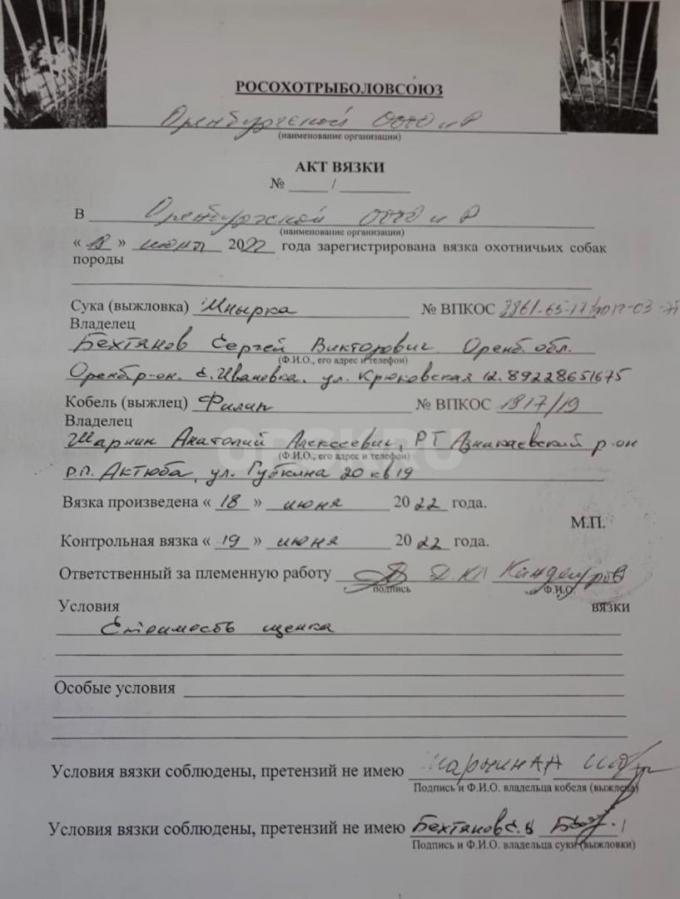 РОСОХОТРЫБОЛОВСОЮЗ
Оренбургской ООО и Р
(наименование организации)
АКТ ВЯЗКИ
№ _____ / _________
В Оренбургской ООО и Р
(наименование организации)
« 18 » июня 2022 года зарегистрирована вязка охотничьих собак
породы
Сука (выжловка) Мнырка № ВПКОС
Владелец
Бехтянов Сергей Викторович Оренб. обл.
(Ф.И.О., его адрес и телефон)
Оренб р-он. с. Ивановка. ул. Крюковская 12. 89228651675
Кобель (выжлец) Филин № ВПКОС 1917/19
Владелец
Шарнин Анатолий Алексеевич, РТ Азнакаевский р-он
(Ф.И.О., его адрес и телефон)
р.п. Актюба, ул. Губкина 20 кв 19
OPSK.RU
Вязка произведена « 18 » июня 2022 года.
М.П.
Контрольная вязка « 19 » июня 2022 года.
Ответственный за племенную работу
подпись Ф.И.О.
Условия вязки
Стоимость щенка
Особые условия
Условия вязки соблюдены, претензий не имею Шарнин АА
Подпись и Ф.И.О. владельца кобеля (выжлеца)
Условия вязки соблюдены, претензий не имею Бехтянов С.В
Подпись и Ф.И.О. владельца суки (выжловки)